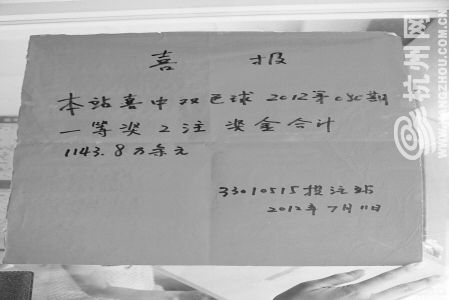 喜报
本站喜中双色球2012年080期
一等奖2注 奖金合计
1143.8万余元
33010515投注站
2012年7月11日
杭州网
WWW.HANGZHOU.COM.CN